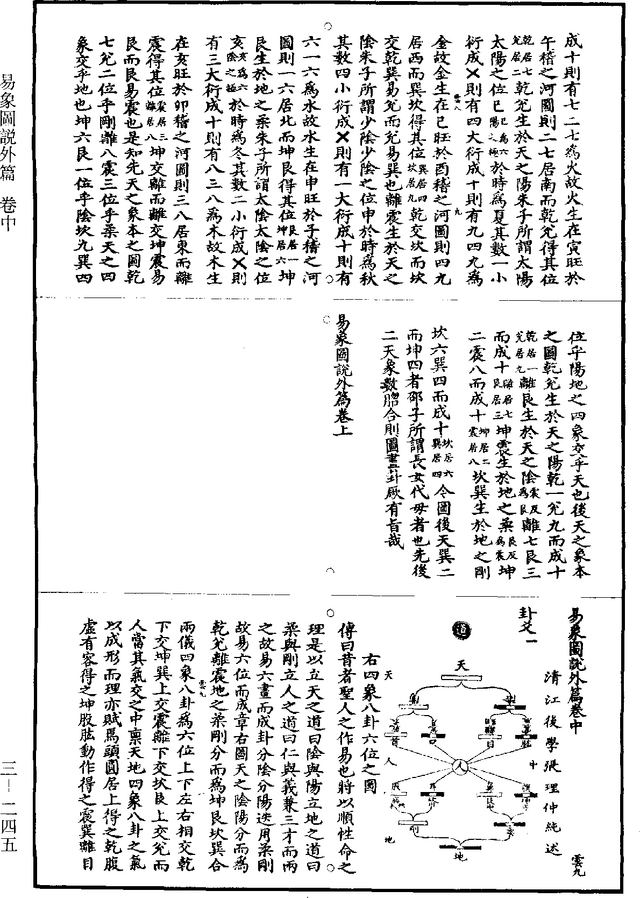 成十則有七二七為火故火生在寅旺於
午稽之河圖則二七居南而乾兌得其位
乾居七兌居二乾兌生於天之陽朱子所謂太陽
太陽之位巳為六陽之極巳於時為夏其數一小
衍成㐅則有四大衍成十則有九四九為
金故金生在巳旺於酉稽之河圖則四九
居西而巽坎得其位巽居四坎居九乾交坎而坎
交乾巽易兌而兌易巽也離震生於天之
陰朱子所謂少陰少陰之位申於時為秋
其數四小衍成㐅則有一大衍成十則有
六一六為水故水生在申旺於子稽之河
圖則一六居北而坤艮得其位艮居一坤居六坤
艮生於地之柔朱子所謂太陰太陰之位
亥亥為六陰之極於時為冬其數二小衍成㐅則
有三大衍成十則有八三八為木故木生
在亥旺於卯稽之河圖則三八居東而離
震得其位震居三離居八坤交離而離交坤震易
艮而艮易震也是知先天之象本之圖乾
七兌二位乎剛離八震三位乎柔天之四
象交乎地也坤六艮一位乎陰坎九巽四
位乎陽地之四象交乎天也後天之象本
之圖乾兌生於天之陽乾一兌九而成十
乾居一兌居九離艮生於天之陰震反為艮離七艮三
而成十離居七艮居三坤震生於地之柔艮反為震坤
二震八而成十坤居二震居八坎巽生於地之剛
坎六巽四而成十坎居六巽居四今圖後天巽二
而坤四者邵子所謂長女代母者也先後
二天象數脗合則圖書卦厥有旨哉
易象圖說外篇卷上
易象圖說外篇卷中 雲九
清江後學張理仲純述
卦爻一
道
天
人
人
中
地
地
右四象八卦六位之圖
傳曰昔者聖人之作易也將以順性命之
理是以立天之道曰陰與陽立地之道曰
柔與剛立人之道曰仁與義兼三才而兩
之故易六畫而成卦分陰分陽迭用柔剛
故易六位而成章右圖天之陰陽分而為
乾兌離震地之柔剛分而為坤艮坎巽合
兩儀四象八卦為六位上下左右相交乾
下交坤巽上交震離下交坎艮上交兌而
人當其氣交之中稟天地四象八卦之氣
以成形而理亦賦焉頭圓居上得之乾腹
虛有容得之坤股肱動作得之震巽離目
易象圖說外篇 卷中
三－二四五